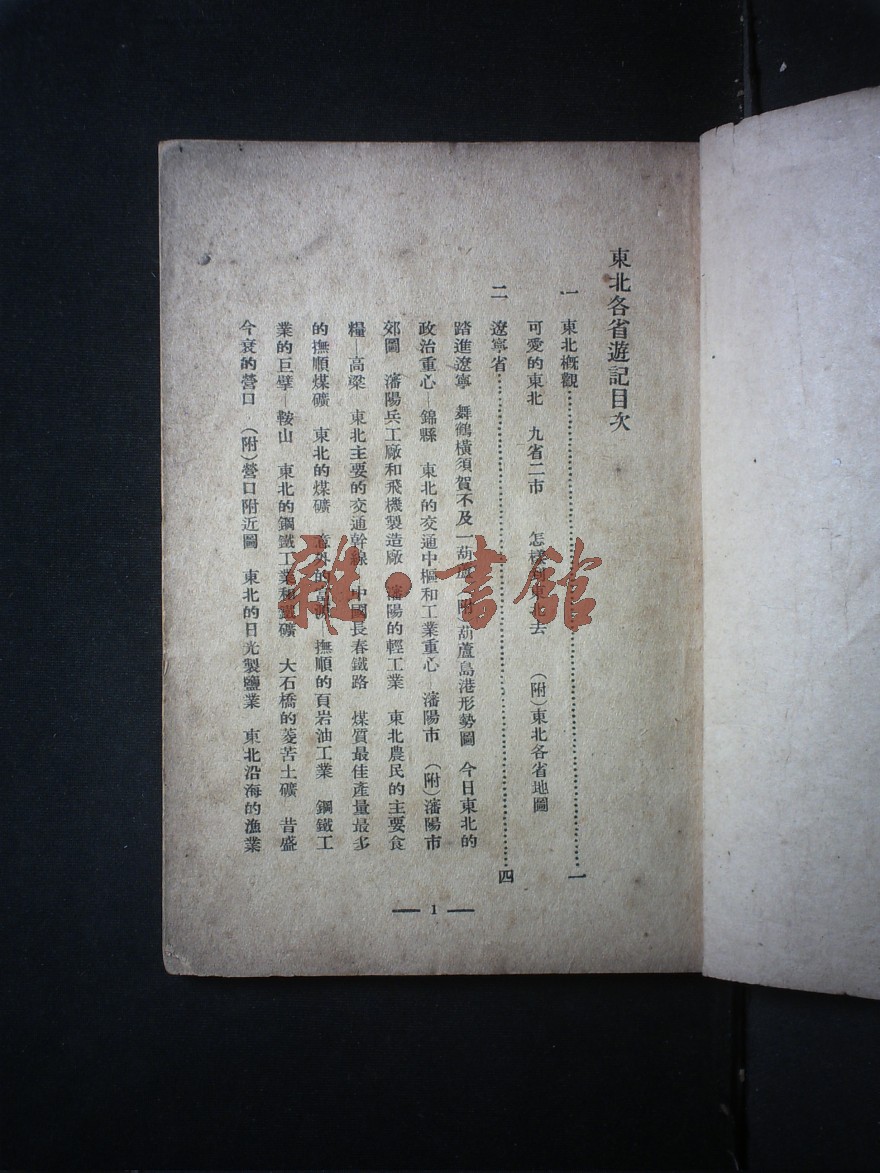 東北各省遊記目次
一 東北概觀……一
可愛的東北 九省二市 怎樣到東北去 (附)東北各省地圖
二 遼寧省……四
踏進遼寧 舞鶴橫須賀不及一葫蘆 (附)葫蘆島港形勢圖 今日東北的
政治重心—錦縣 東北的交通中樞和工業重心—瀋陽市 (附)瀋陽市
郊圖 瀋陽兵工廠和飛機製造廠 瀋陽的輕工業 東北農民的主要食
糧—高梁 東北主要的交通幹線 中國長春鐵路 煤質最佳產量最多
的撫順煤礦 東北的煤礦 意外的富源—撫順的頁岩油工業 鋼鐵工
業的巨擘—鞍山 東北的鋼鐵工業和鐵礦 大石橋的菱苦土礦 昔盛
今衰的營口 (附)營口附近圖 東北的日光製鹽業 東北沿海的漁業
— 1 —
雜·書館